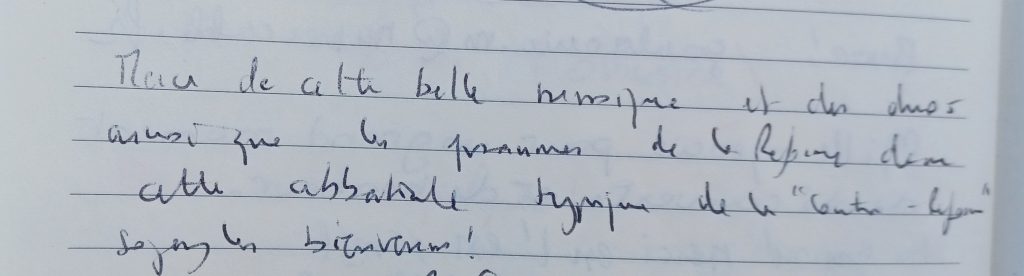 Merci de cette belle musique et des duos
ainsi que les psaumes de la Réforme dans
cette abbatiale typique de la "Contre-Réforme"
Soyez les bienvenus!